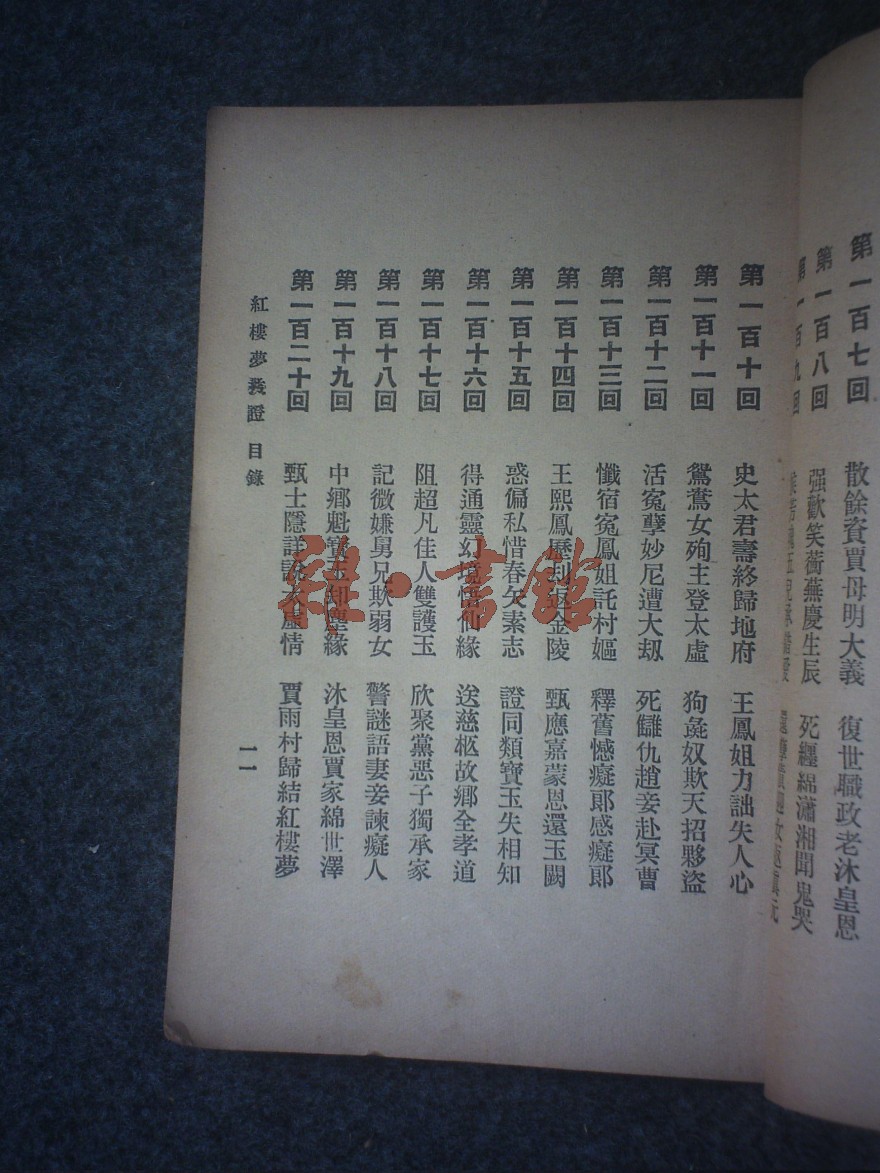 第一百七回 散餘資賈母明大義 復世職政老沐皇恩
第一百八回 强歡笑蘅蕪慶生辰 死纏綿瀟湘聞鬼哭
第一百九回
第一百十回 史太君壽終歸地府 王鳳姐力詘失人心
第一百十一回 鴛鴦女殉主登太虛 狗彘奴欺天招夥盜
第一百十二回 活冤孽妙尼遭大刼 死讎仇趙妾赴冥曹
第一百十三回 懺宿冤鳳姐託村嫗 釋舊憾癡郎感癡郎
第一百十四回 王熙鳳歷刦返金陵 甄應嘉蒙恩還玉闕
第一百十五回 惑偏私惜春矢素志 證同類寶玉失相知
第一百十六回 得通靈幻境悟仙緣 送慈柩故鄉全孝道
第一百十七回 阻超凡佳人雙護玉 欣聚黨惡子獨承家
第一百十八回 記微嫌舅兄欺弱女 警謎語妻妾諫癡人
第一百十九回 中鄉魁寶玉卻塵緣 沐皇恩賈家綿世澤
第一百二十回 甄士隱詳說太虛情 賈雨村歸結紅樓夢
紅樓夢發證 目錄
一一
雜·書館